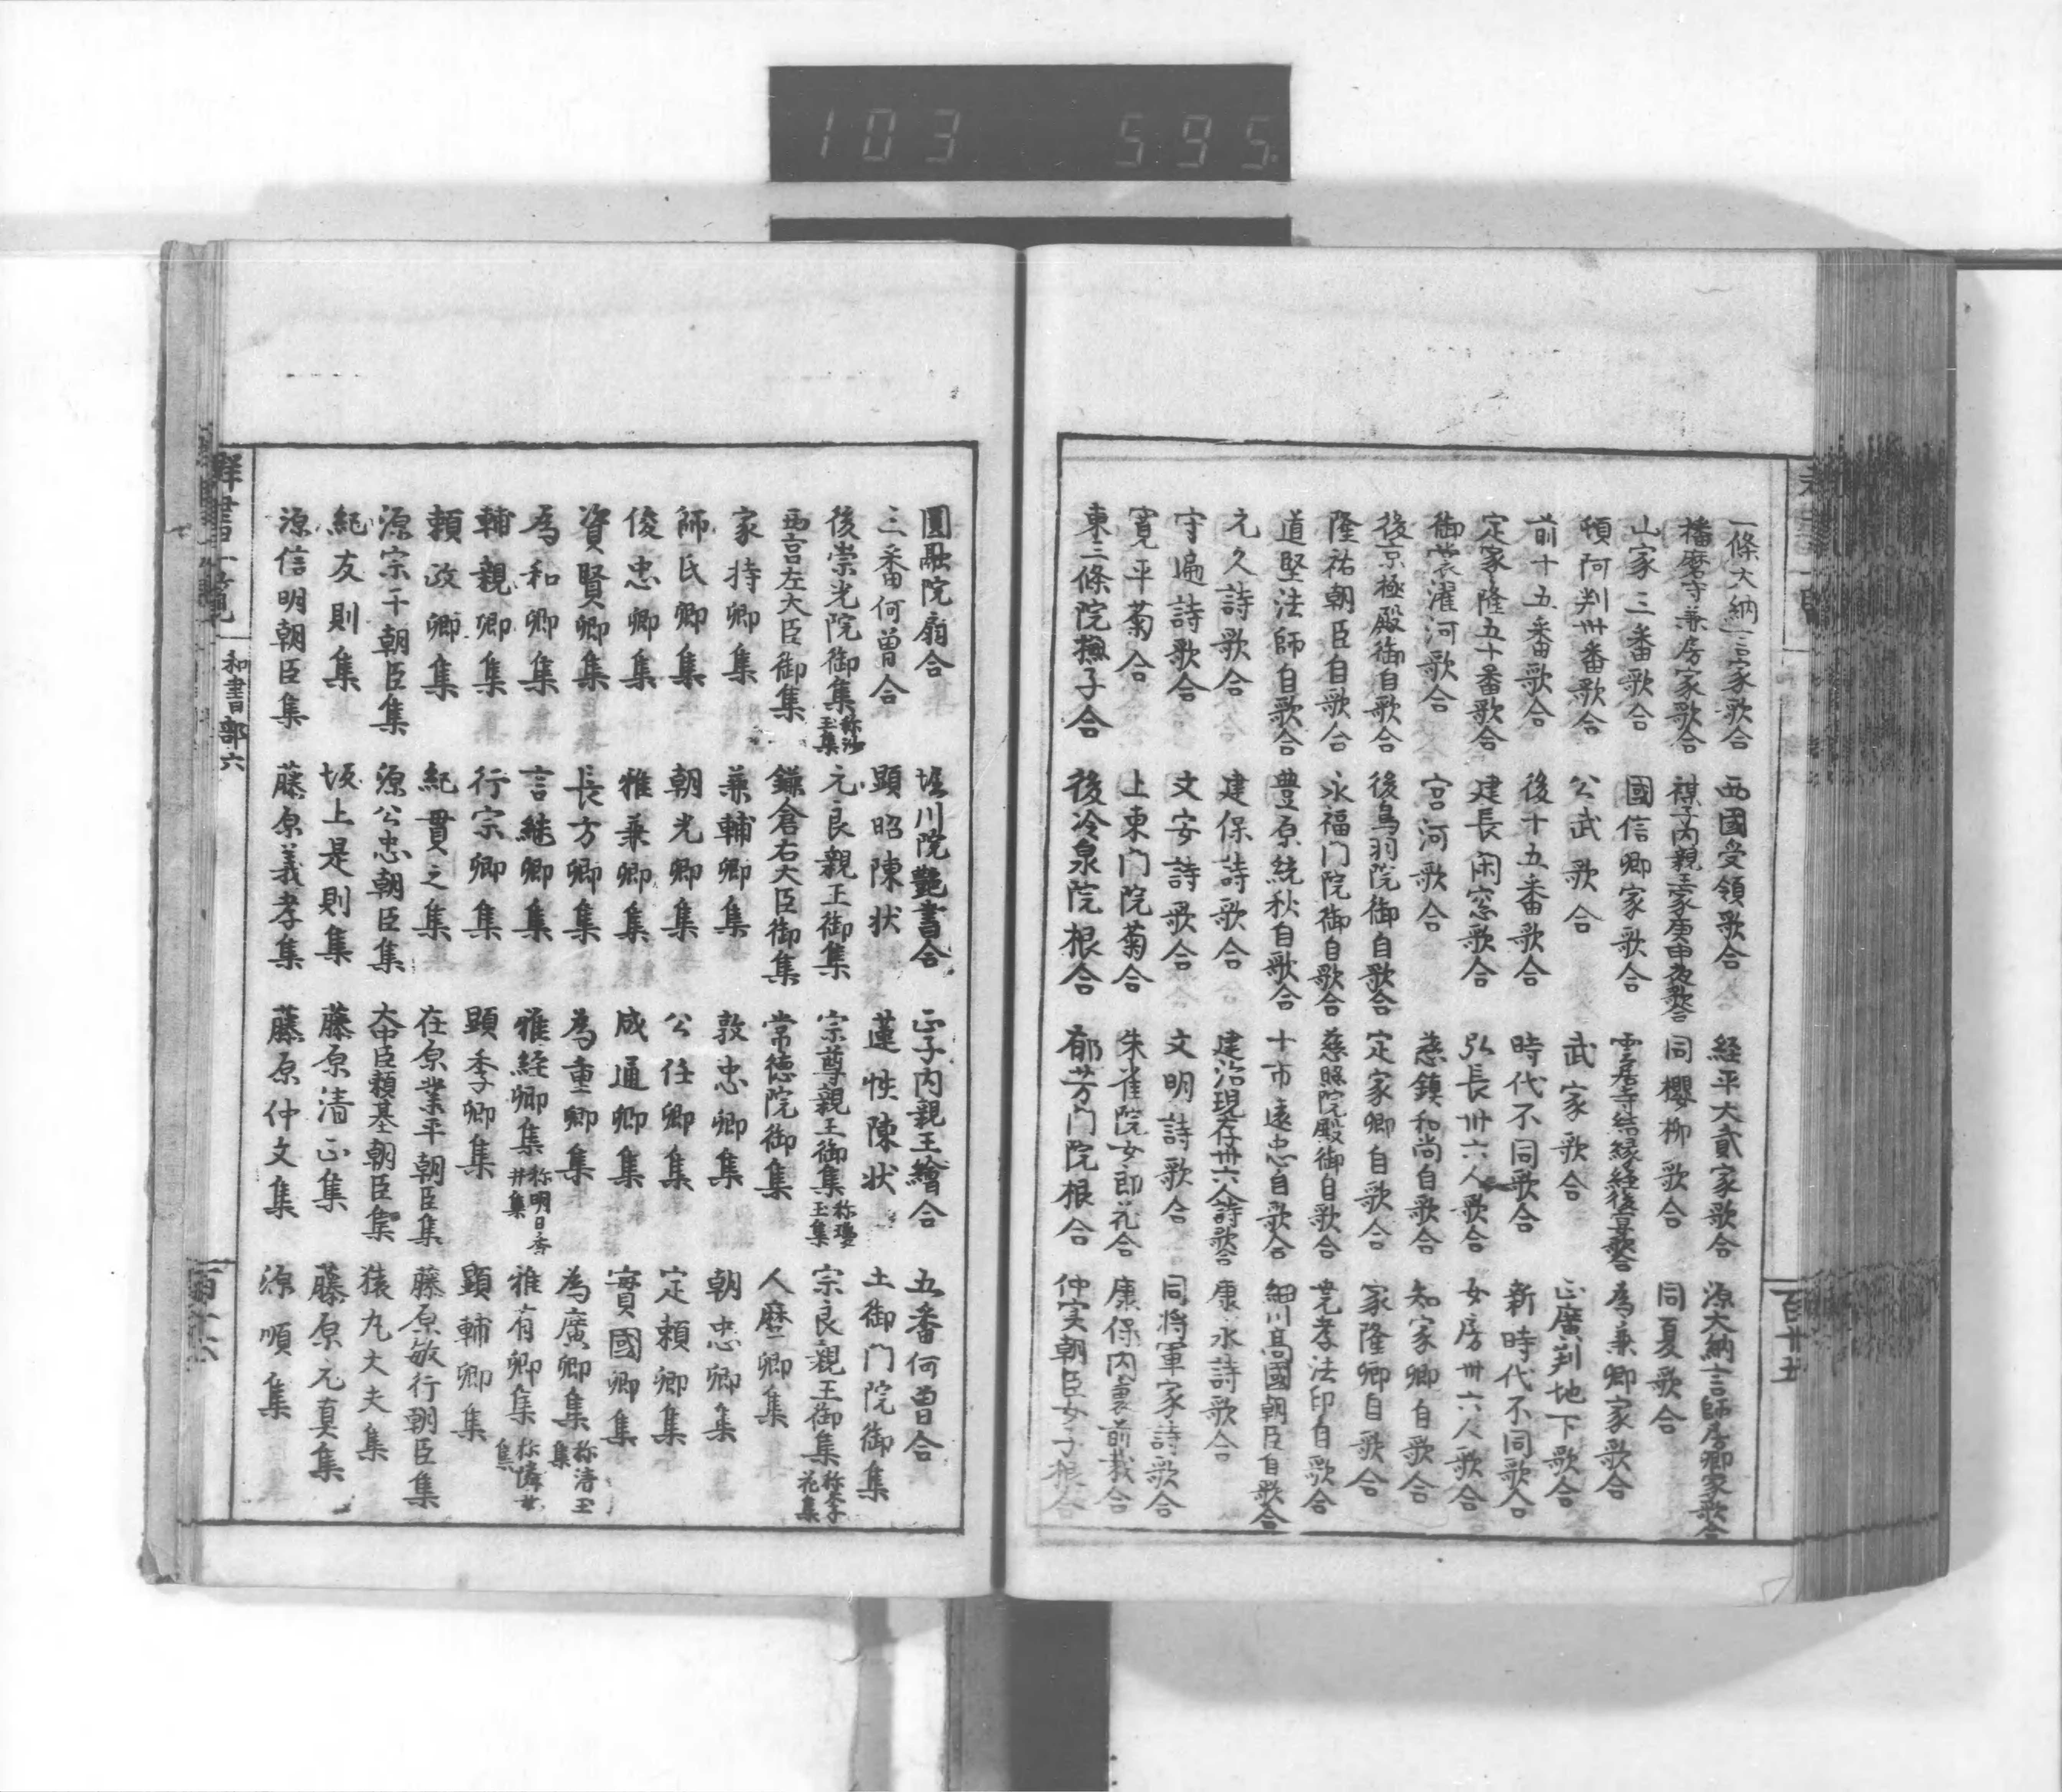 103 595
一條大納言家歌合 西國受領歌合 経平大貳家歌合 源大納言師房卿家歌合
播磨守兼房家歌合 禖子内親王家庚申夜歌合 同櫻柳歌合 同夏歌合
山家三番歌合 國信卿家歌合 雲居寺結縁経後宴歌合 為兼卿家歌合
頓阿判卅番歌合 公武歌合 武家歌合 正廣判地下歌合
前十五番歌合 後十五番歌合 時代不同歌合 新時代不同歌合
定家隆五十番歌合 建長閑窓歌合 弘長卅六人歌合 女房卅六人歌合
御裳濯河歌合 宮河歌合 慈鎮和尚自歌合 知家卿自歌合
後京極殿御自歌合 後鳥羽院御自歌合 定家卿自歌合 家隆卿自歌合
隆祐朝臣自歌合 永福門院御自歌合 慈照院殿御自歌合 堯孝法印自歌合
道堅法師自歌合 豊原統秋自歌合 十市遠忠自歌合 細川高國朝臣自歌合
元久詩歌合 建保詩歌合 建治現存卅六人詩歌合 康永詩歌合
守遍詩歌合 文安詩歌合 文明詩歌合 同将軍家詩歌合
寛平菊合 上東門院菊合 朱雀院女郎花合 康保内裏前栽合
東三條院撫子合 後冷泉院根合 郁芳門院根合 仲実朝臣女子根合
百廿五
圓融院扇合 堀川院艶書合 正子内親王繪合 五番何曽合
三番何曽合 顕昭陳状 蓮性陳状 土御門院御集
後崇光院御集称沙玉集 元良親王御集 宗尊親王御集称瓊玉集 宗良親王御集称李花集
西宮左大臣御集 鎌倉右大臣御集 常徳院御集 人麿卿集
家持卿集 兼輔卿集 敦忠卿集 朝忠卿集
師氏卿集 朝光卿集 公任卿集 定頼卿集
俊忠卿集 雅兼卿集 成通卿集 實國卿集
資賢卿集 長方卿集 為重卿集 為廣卿集称清玉集
為和卿集 言継卿集 雅経卿集称明日香井集 雅有卿集称隣女集
輔親卿集 行宗卿集 顕季卿集 顕輔卿集
頼政卿集 紀貫之集 在原業平朝臣集 藤原敏行朝臣集
源宗于朝臣集 源公忠朝臣集 大中臣頼基朝臣集 猿丸大夫集
紀友則集 坂上是則集 藤原清正集 藤原元真集
源信明朝臣集 藤原義孝集 藤原仲文集 源順集
群書一覧 和書部六